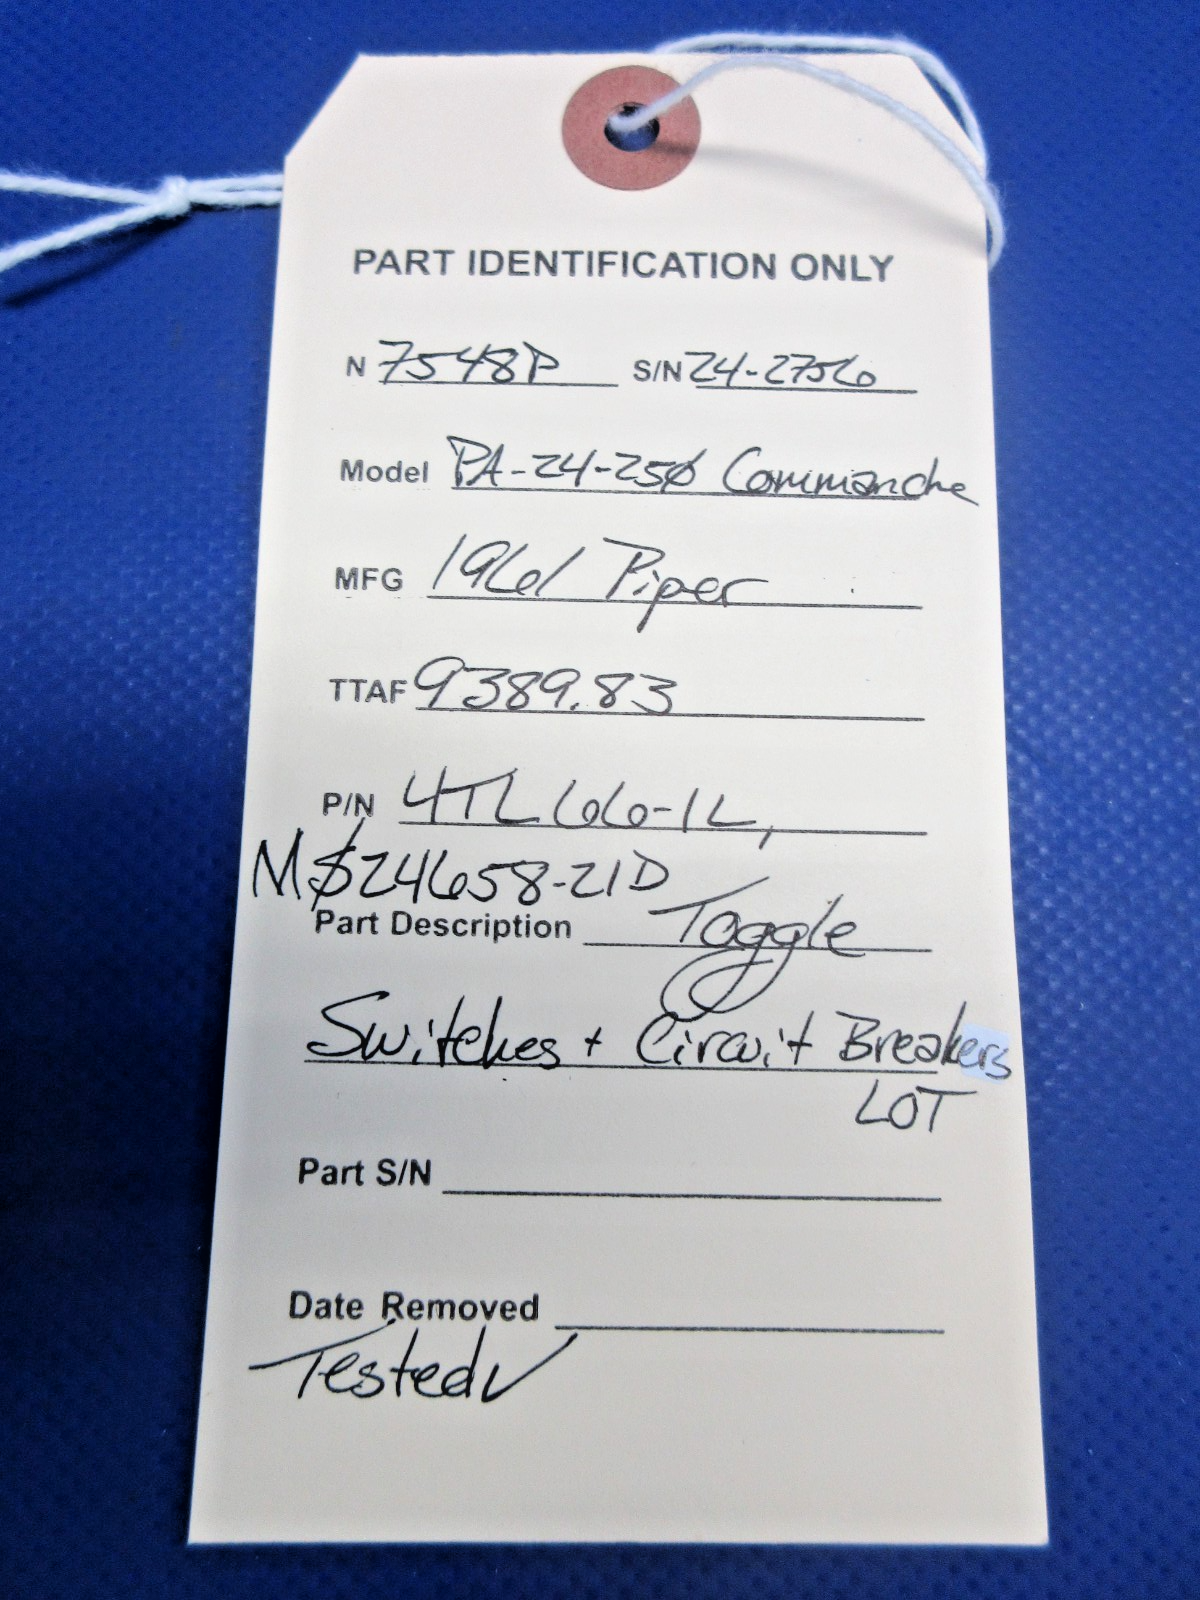 PART IDENTIFICATION ONLY
N 7548P S/N 24-2756
Model PA-24-250 Commanche
MFG 1961 Piper
TTAF 9389.83
P/N 4TL66-1L,
MS24658-21D
Part Description Toggle
Switches + Circuit Breakers
LOT
Part S/N
Date Removed
Tested✓